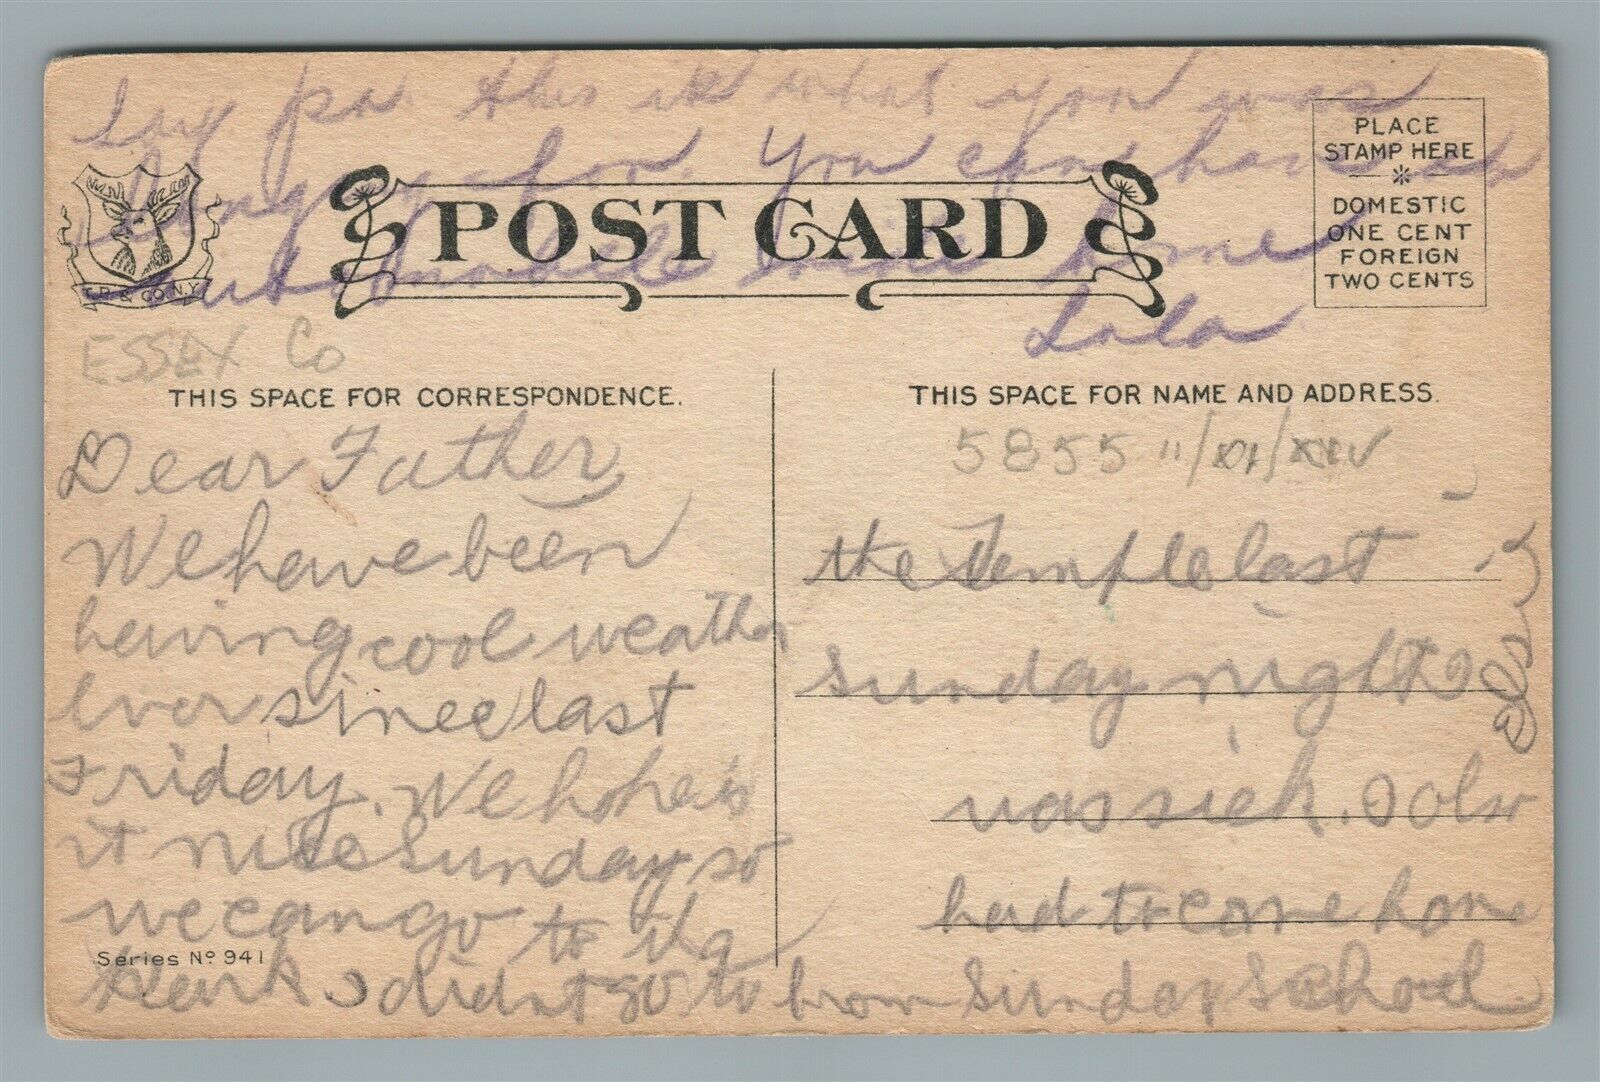 Say pa. this is what you was
longing for. You can have an
automobile ride home
Lola
PLACE
STAMP HERE
DOMESTIC
ONE CENT
FOREIGN
TWO CENTS
POST CARD
T.R. & CO. N.Y.
ESSEX Co
THIS SPACE FOR CORRESPONDENCE.
THIS SPACE FOR NAME AND ADDRESS.
5855 11/XI/
Dear Father
We have been
having cool weather
ever since last
Friday. We hope is
it nice Sunday so
we can go to the
Park I didnt go to
Series No 941
the Temple last
Sunday night I
was sick. I olso
had to come home
from Sunday School.
Elsy